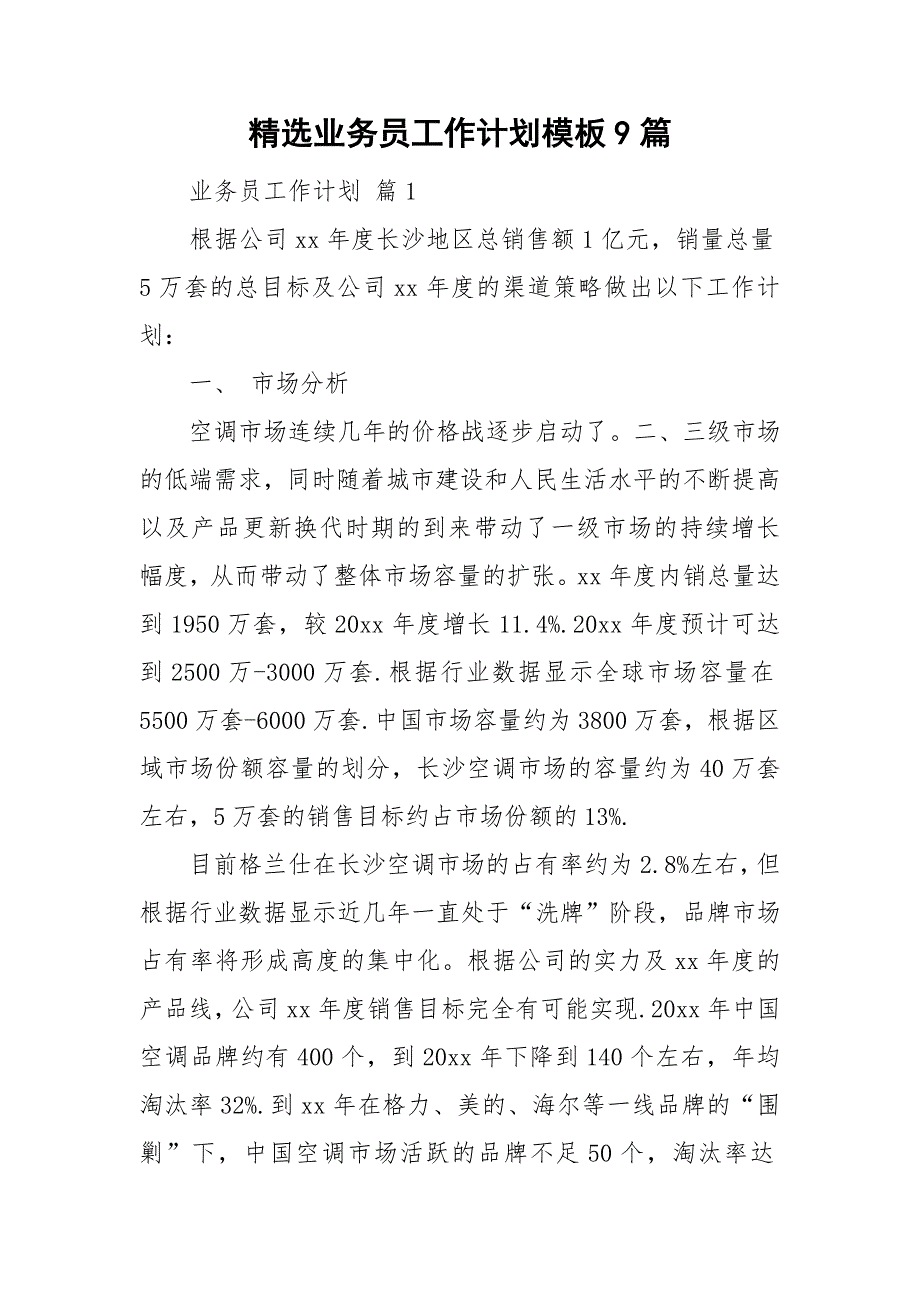 精选业务员工作计划模板9篇
业务员工作计划 篇1
根据公司xx年度长沙地区总销售额1亿元，销量总量
5万套的总目标及公司xx年度的渠道策略做出以下工作计
划：
一、 市场分析
空调市场连续几年的价格战逐步启动了。二、三级市场
的低端需求，同时随着城市建设和人民生活水平的不断提高
以及产品更新换代时期的到来带动了一级市场的持续增长
幅度，从而带动了整体市场容量的扩张。xx年度内销总量达
到1950万套，较20xx年度增长11.4%.20xx年度预计可达
到2500万-3000万套.根据行业数据显示全球市场容量在
5500万套-6000万套.中国市场容量约为3800万套，根据区
域市场份额容量的划分，长沙空调市场的容量约为40万套
左右，5万套的销售目标约占市场份额的13%.
目前格兰仕在长沙空调市场的占有率约为2.8%左右，但
根据行业数据显示近几年一直处于“洗牌”阶段，品牌市场
占有率将形成高度的集中化。根据公司的实力及xx年度的
产品线，公司xx年度销售目标完全有可能实现.20xx年中国
空调品牌约有400个，到20xx年下降到140个左右，年均
淘汰率32%.到xx年在格力、美的、海尔等一线品牌的“围
剿”下，中国空调市场活跃的品牌不足50个，淘汰率达